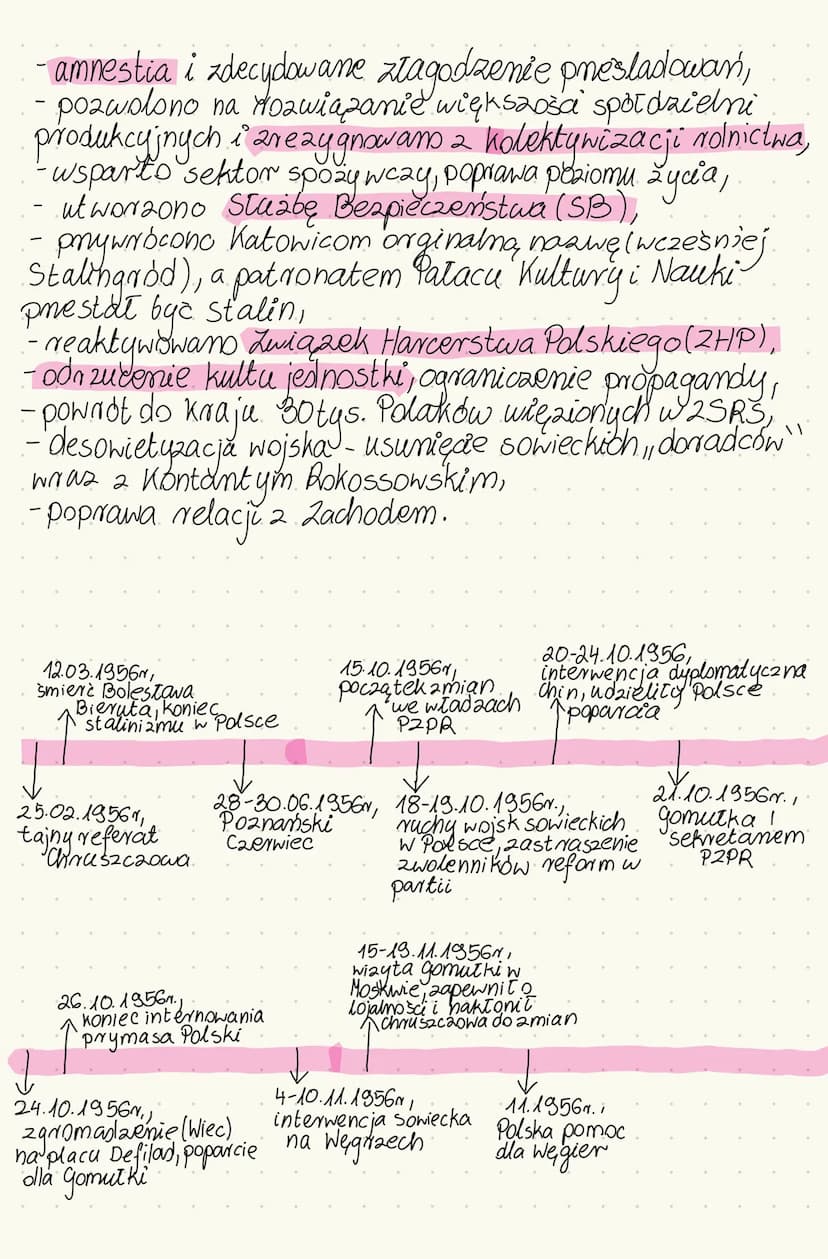 - amnestia i zdecydowane złagodzenie prześladowań,
- pozwolono na rozwiązanie większości spółdzielni
produkcyjnych i zrezygnowano z kolektywizacji rolnictwa,
- wsparto sektor spożywczy, poprawa poziomu życia,
- utworzono Służbę Bezpieczeństwa (SB),
- przywrócono Katowicom orginalną nazwę (wcześniej
Stalinogród), a patronatem Pałacu Kultury i Nauki
przestał być Stalin,
- reaktywowano Związek Harcerstwa Polskiego (ZHP),
- odrzucenie kultu jednostki, ograniczenie propagandy,
- powrót do kraju 30 tys. Polaków więzionych w ZSRS,
- desowietyzacja wojska - usunięcie sowieckich „doradców"
wraz z Kontantym Rokossowskim,
- poprawa relacji z Zachodem.
12.03.1956r,
śmierć Bolesława
Bieruta, koniec
stalinizmu w Polsce
15.10.1956r,
początek zmian
we władzach
PZPR
20-24.10.1956,
interwencja dyplomatyczna
Chin, udzieliły Polsce
poparcia
25.02.1956r,
tajny referat
Chruszczowa
28-30.06.1956r,
Poznański
Czerwiec
18-19.10.1956r.,
ruchy wojsk sowieckich
w Polsce, zastraszenie
zwolenników reform w
partii
21.10.1956r.,
Gomułka I
sekretarzem
PZPR
26.10.1956r.,
koniec internowania
prymasa Polski
15-19.11.1956r,
wizyta Gomułki w
Moskwie, zapewnił o
lojalności i nakłonił
Chruszczowa do zmian
24.10.1956r.,
zgromadzenie (Wiec)
na placu Defilad, poparcie
dla Gomułki
4-10.11.1956r,
interwencja sowiecka
na Węgrzech
11.1956r.,
Polska pomoc
dla Węgier